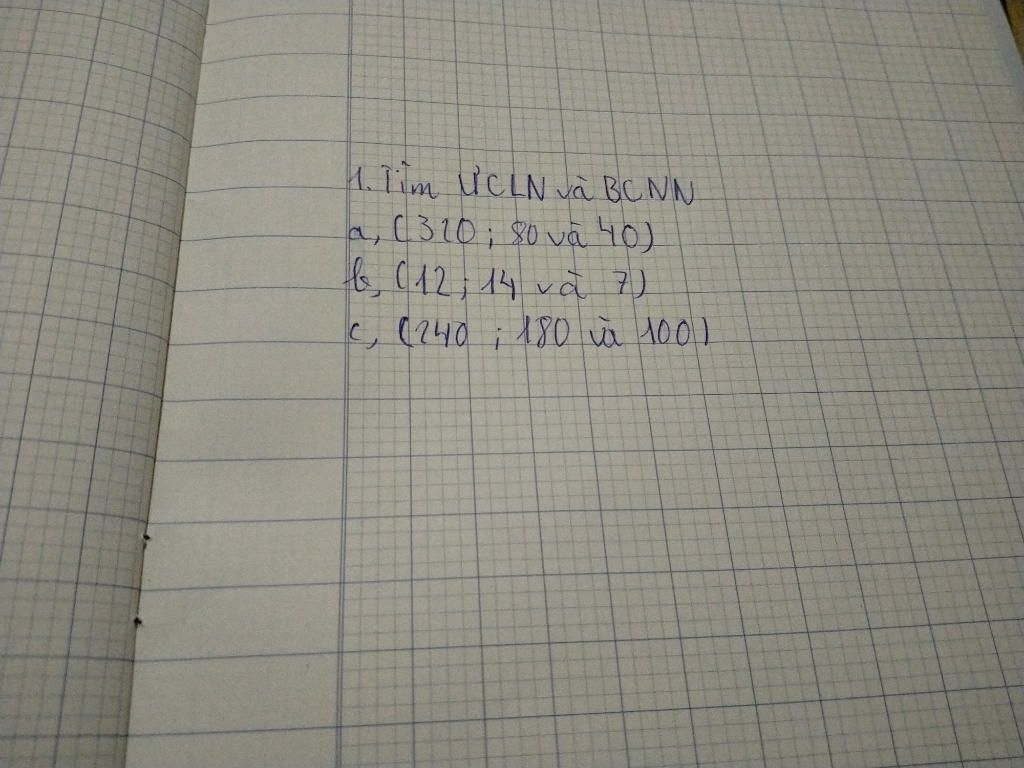 1. Tìm ƯCLN và BCNN
a, (320 ; 80 và 40)
b, (12 ; 14 và 7)
c, (240 ; 180 và 100)